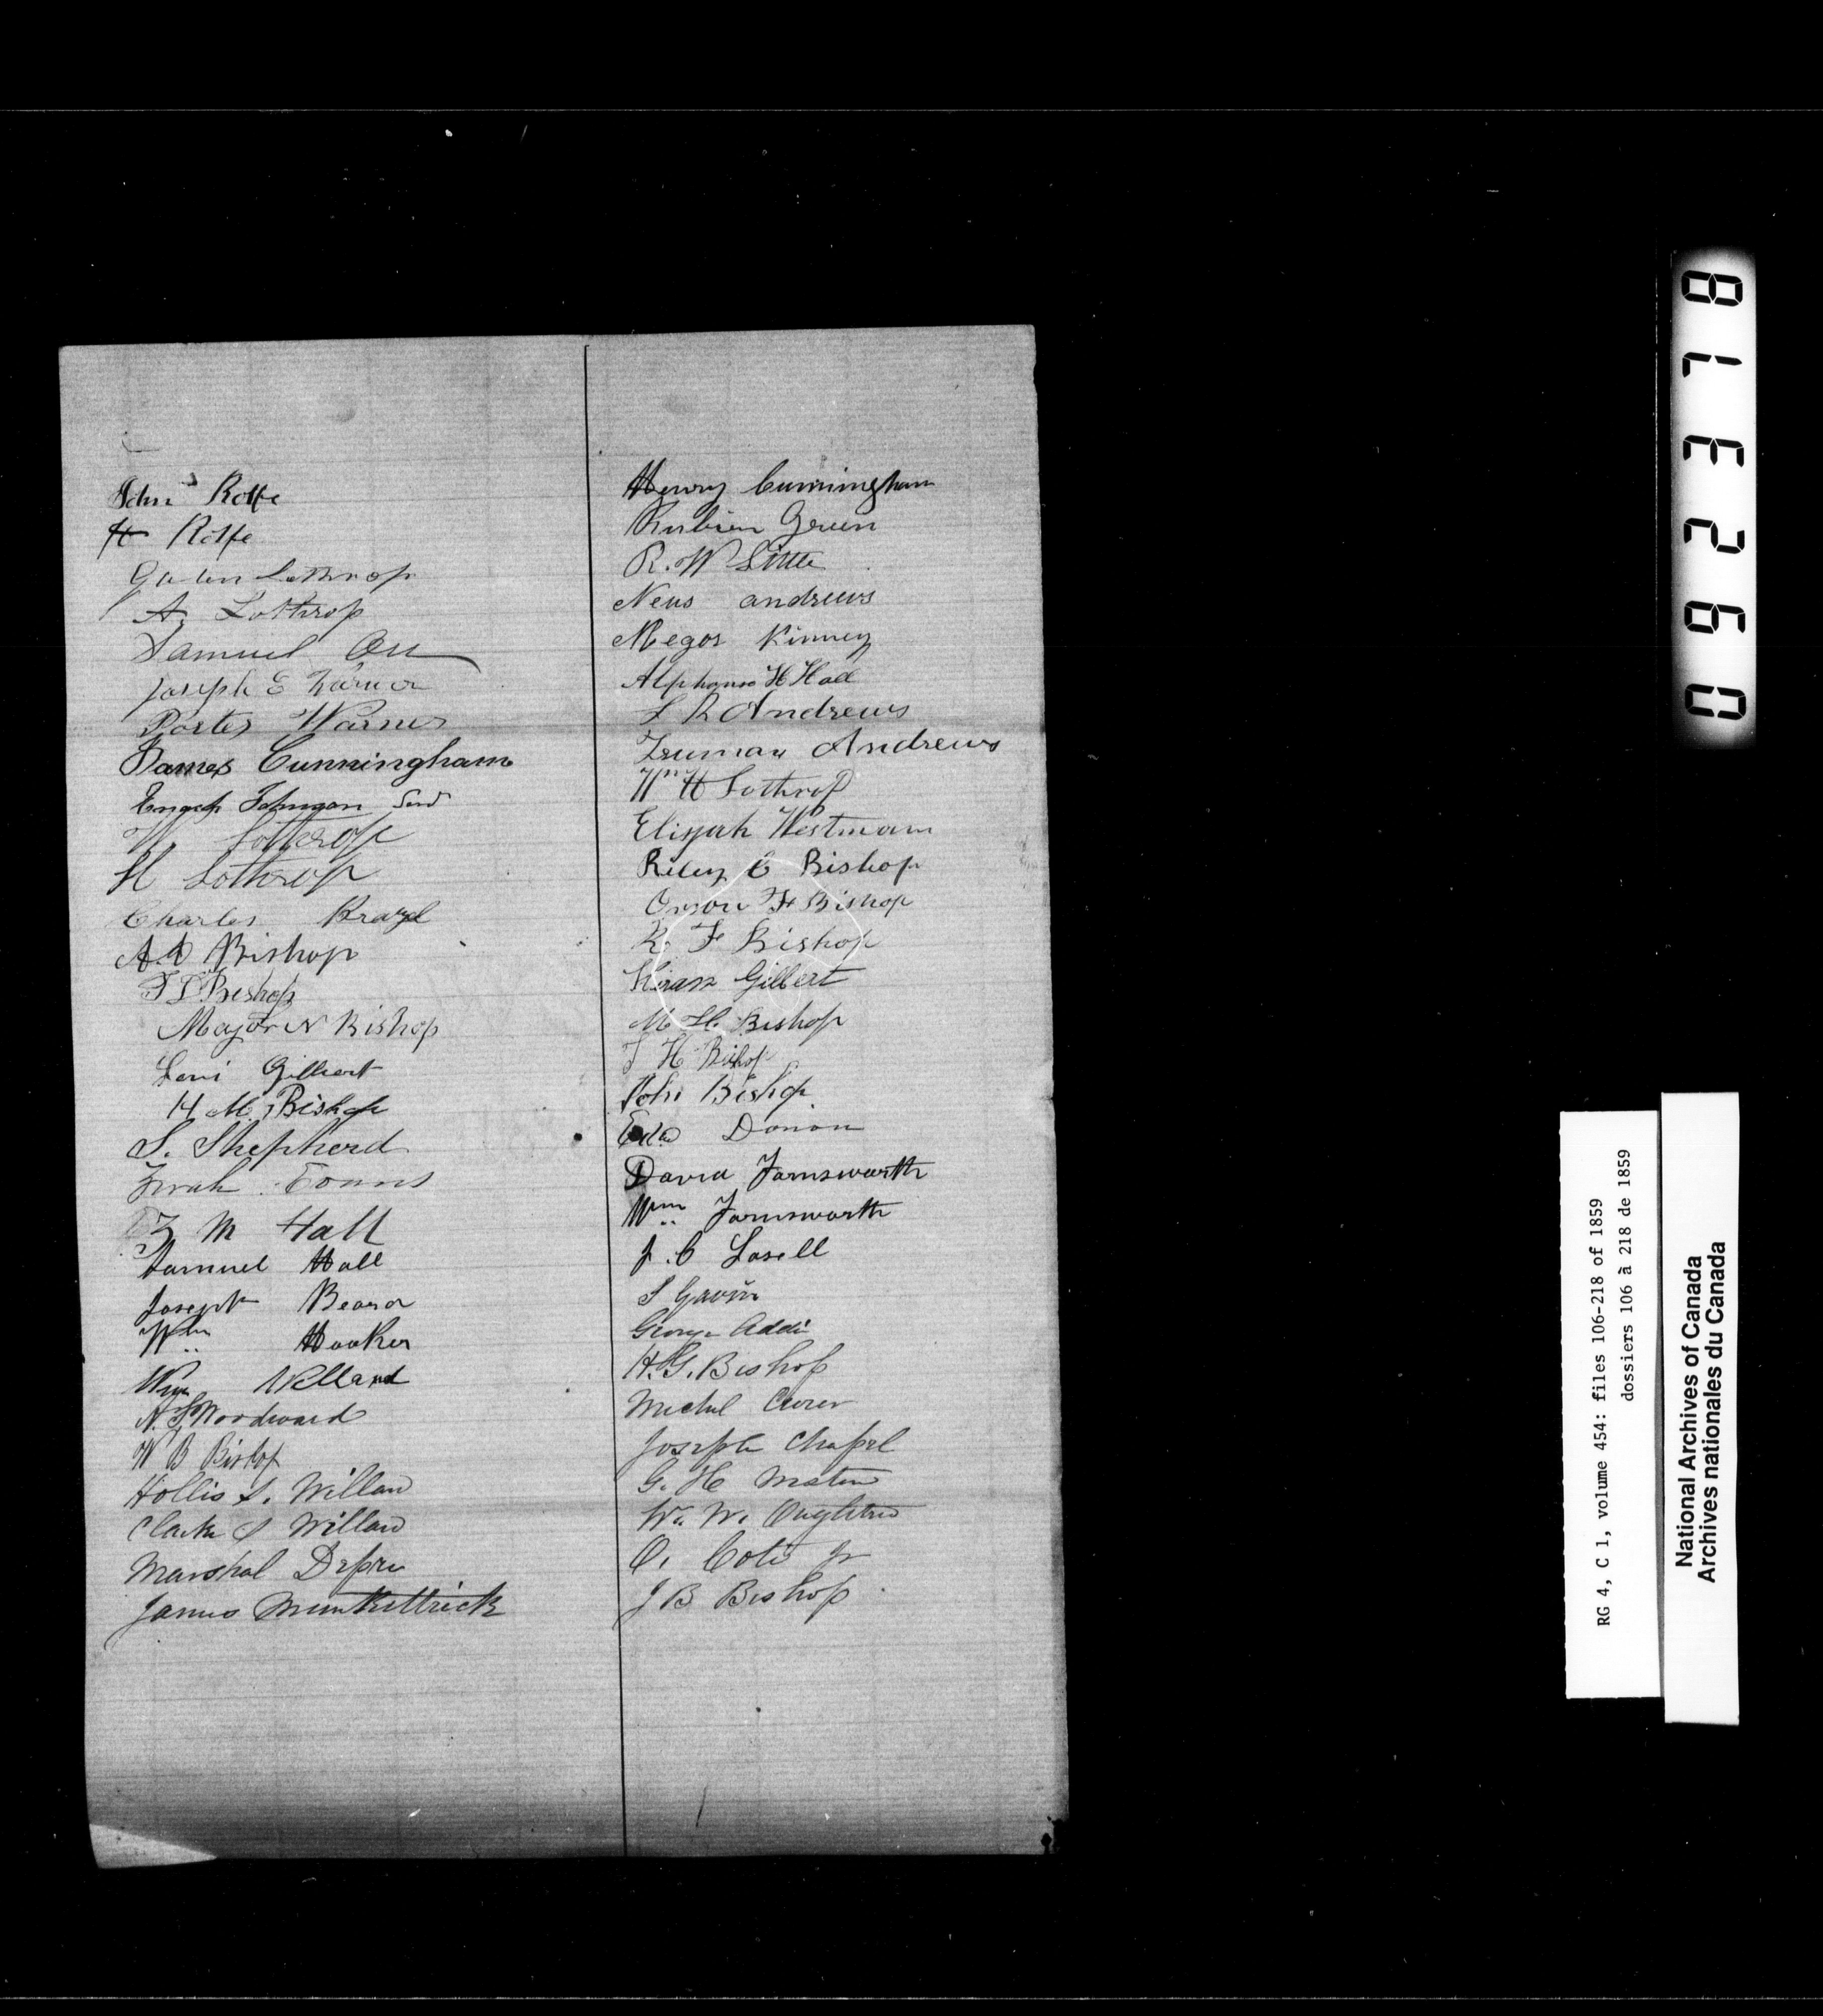 John Rolfe
H Rolfe
Galen Lothrop
A. Lothrop
Samuel Orr
Joseph E Warner
Porter Warner
James Cunningham
Enoch Johnson Senr
W Lothrop
H Lothrop
Charles
A. A Bishop
F L Bishop
Major N Bishop
Levi Gilbert
H M Bishop
S. Shepherd
Evans
Z M Hall
Samuel Hall
Joseph Beard
Wm Hooker
Wm Willard
N. S. Woodward
W B Bishop
Hollis S. Willard
Clark S Willard
Marshal
James Munkittrick
Henry Cunningham
Rubien Green
R. W Little
Andrews
Kinney
Alphonso H Hall
L R Andrews
Truman Andrews
Wm H Lothrop
Elijah Westman
Riley C Bishop
Orson F Bishop
R F Bishop
Hiram Gilbert
M H Bishop
J H Bishop
John Bishop
Donon
David Farnsworth
Wm Farnsworth
J. C Lasell
S Gavin
George Addi
H. G. Bishop
Michel
Joseph Chapel
G. H
W. W.
O. Cote Jr
J B Bishop
062318
RG 4, C 1, volume 454: files 106-218 of 1859
dossiers 106 à 218 de 1859
National Archives of Canada
Archives nationales du Canada